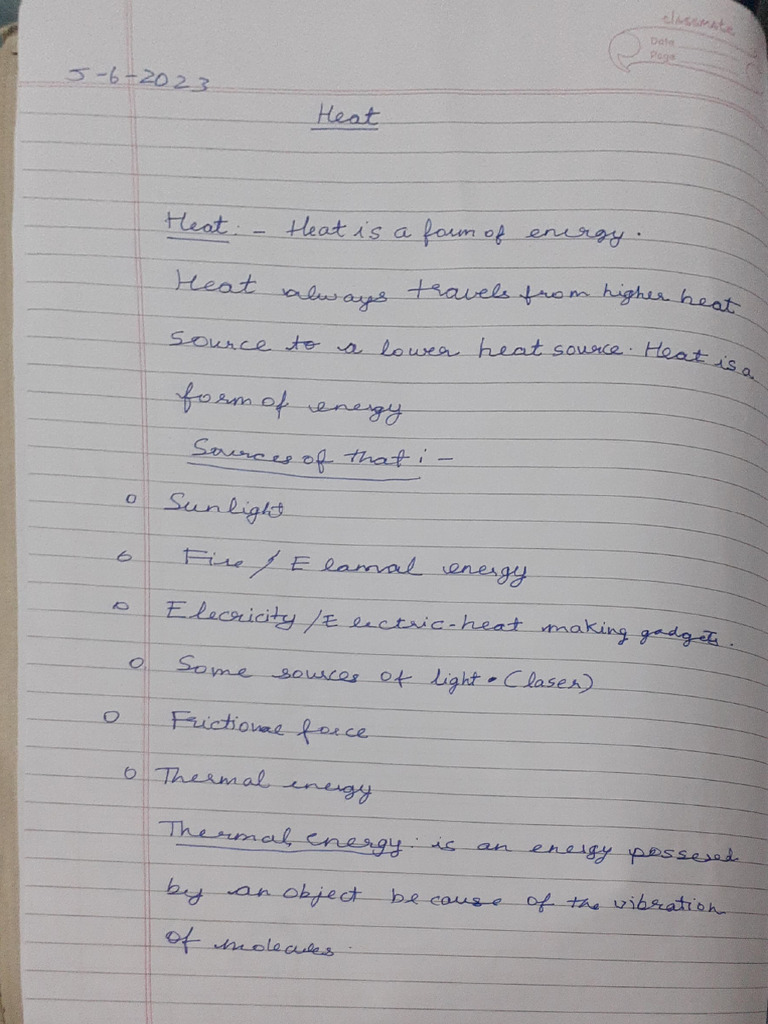 classmate
Date
Page
5-6-2023
Heat
Heat: - Heat is a form of energy.
Heat always travels from higher heat
source to a lower heat source. Heat is a
form of energy
Sources of that : -
o Sunlight
o Fire / Elamal energy
o Elecricity / Electric-heat making gadgets.
o Some sources of light. (laser)
o Frictional force
o Thermal energy
Thermal energy: is an energy possesed
by an object because of the vibration
of molecules.